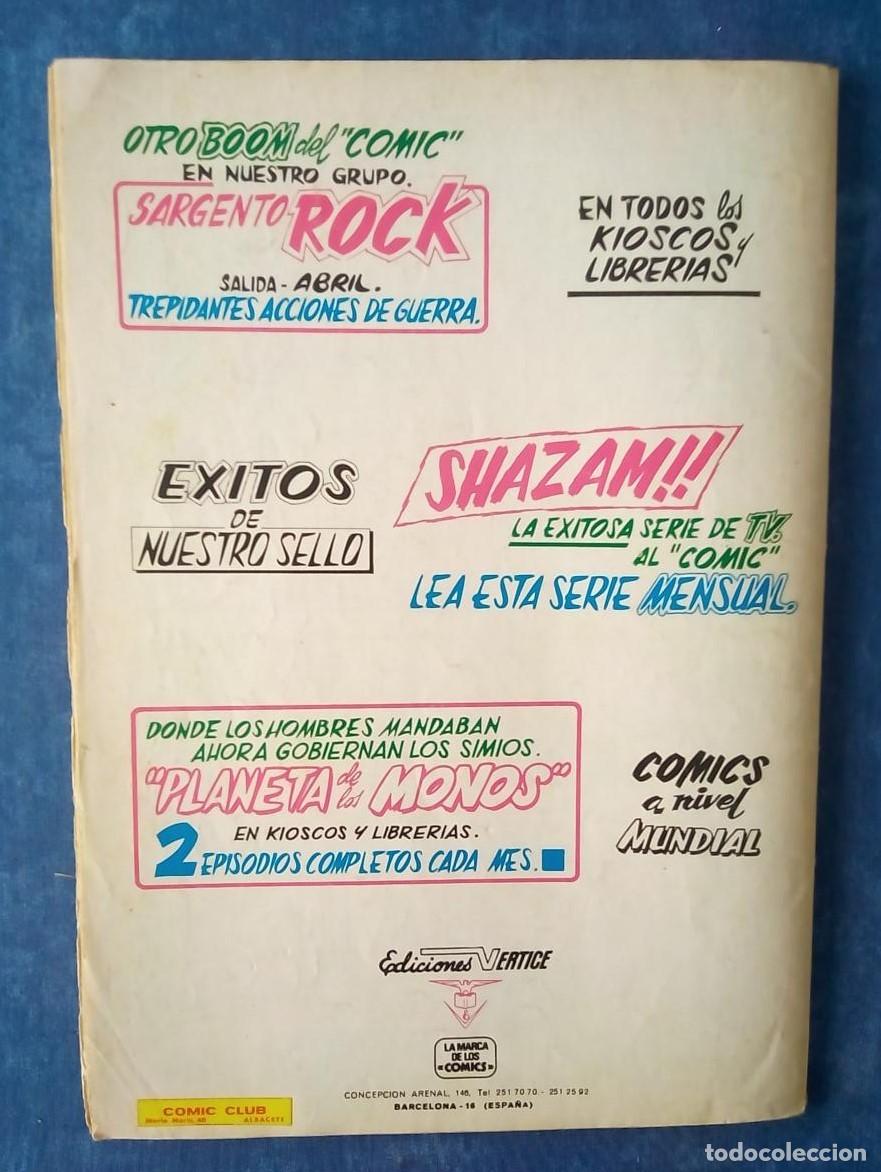 OTRO BOOM del "COMIC"
EN NUESTRO GRUPO.
SARGENTO ROCK
SALIDA - ABRIL.
TREPIDANTES ACCIONES DE GUERRA.
EN TODOS los
KIOSCOS y
LIBRERIAS
EXITOS
DE
NUESTRO SELLO
SHAZAM!!
LA EXITOSA SERIE DE TV.
AL "COMIC"
LEA ESTA SERIE MENSUAL.
DONDE LOS HOMBRES MANDABAN
AHORA GOBIERNAN LOS SIMIOS.
"PLANETA de los MONOS"
EN KIOSCOS Y LIBRERIAS.
2 EPISODIOS COMPLETOS CADA MES.
COMICS
a nivel
MUNDIAL
Ediciones VERTICE
LA MARCA
DE LOS
«COMICS»
CONCEPCION ARENAL, 146, Tel 251 70 70 - 251 25 92
BARCELONA - 16 (ESPAÑA)
COMIC CLUB
ALBACETE
todocoleccion